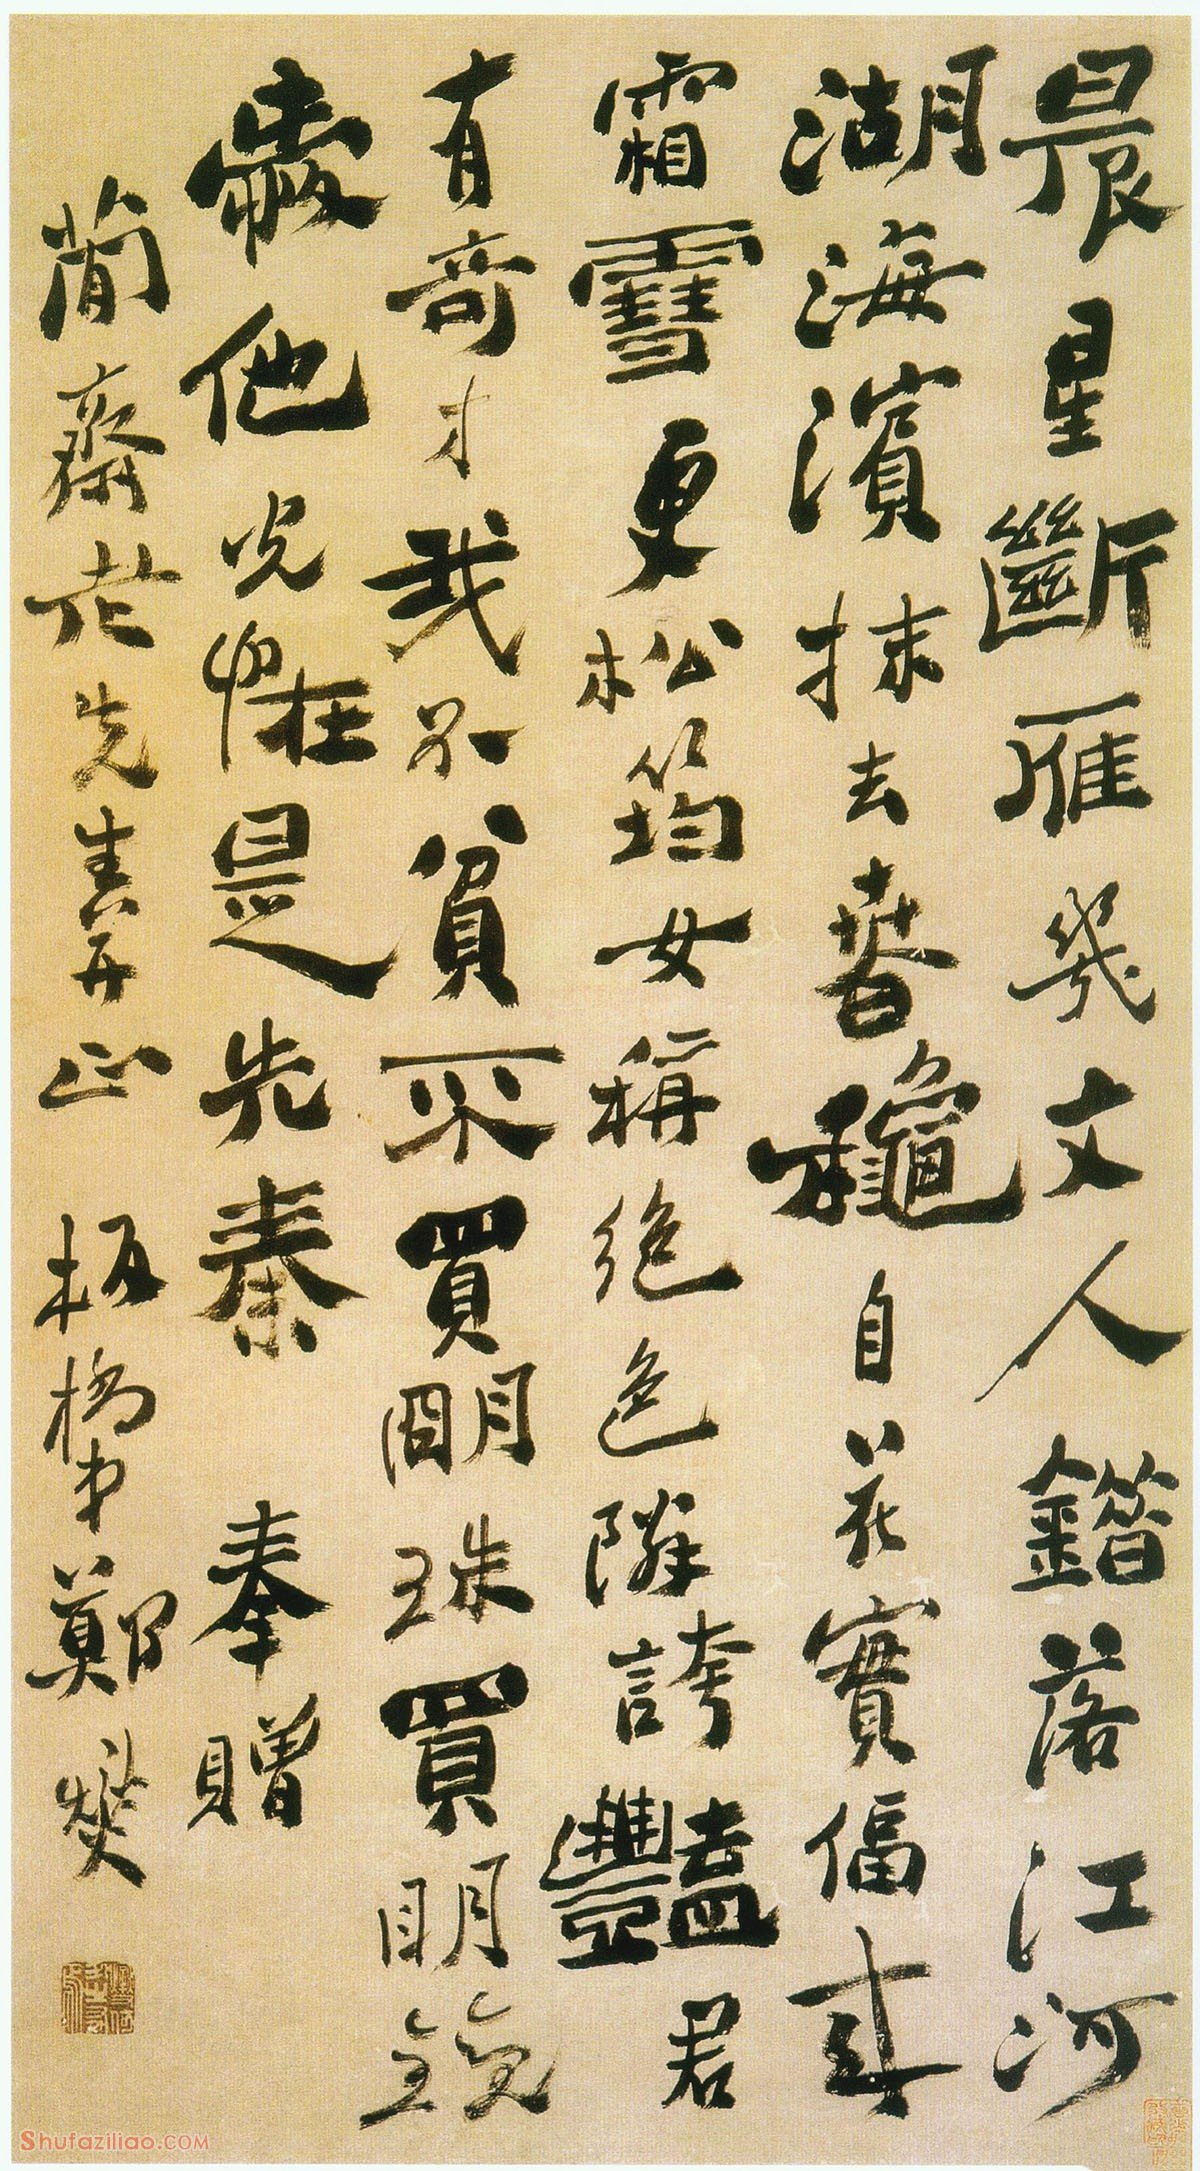 晨星斷雁幾文人錯落江河
湖海濱抹去春龝自花實偪來
霜雪更松筠女稱絕色隣誇豔君
有奇才我不貧不買朙珠買眀鏡
愛他光怪是先秦 奉贈
簡齋老先生正 板橋弟鄭燮
Shufaziliao.COM